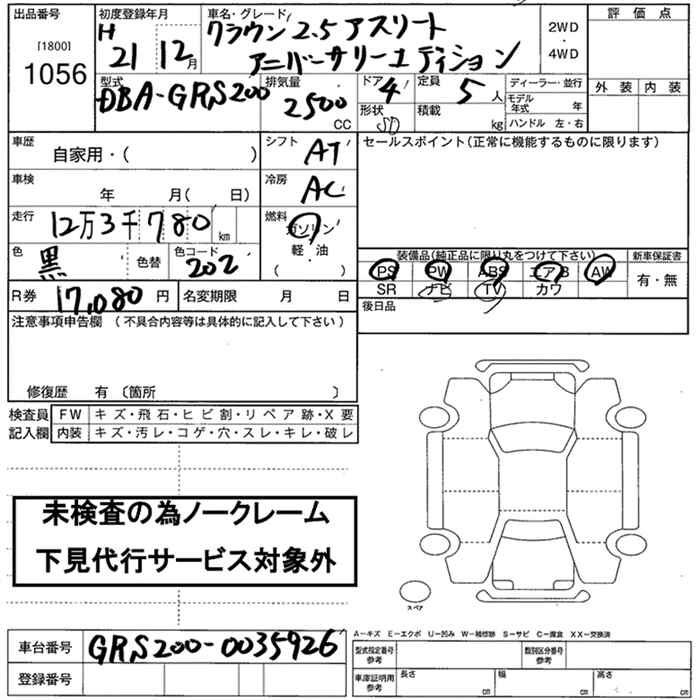 出品番号
[1800]
1056
初度登録年月
H
21 12月
車名・グレード
クラウン 2.5 アスリート
アニバーサリーエディション
2WD
・
4WD
評価点
外装 内装
型式
DBA-GRS200
排気量
2500
CC
ドア
4
定員
5人
形状
SD
積載
kg
ディーラー・並行
モデル年式 年
ハンドル 左・右
車歴
自家用・( )
シフト
AT
セールスポイント(正常に機能するものに限ります)
車検
年 月( 日)
冷房
AC
走行
12万3千780 km
燃料
ガソリン
軽・油
( )
色
黒
色替
色コード
202
装備品(純正品に限り丸をつけて下さい)
PS PW ABS エアB AW
SR ナビ TV カワ
新車保証書
有・無
R券 17,080 円
名変期限 月 日
後日品
注意事項申告欄 (不具合内容等は具体的に記入して下さい)
修復歴 有 〔箇所 〕
検査員
記入欄
FW キズ・飛石・ヒビ割・リペア跡・X要
内装 キズ・汚レ・コゲ・穴・スレ・キレ・破レ
未検査の為ノークレーム
下見代行サービス対象外
スペア
車台番号 GRS200-0035926
登録番号
A−キズ E−エクボ U−凹み W−補修跡 S−サビ C−腐食 XX−交換済
型式指定番号
参考
類別区分番号
参考
車庫証明用
参考
長さ cm
幅 cm
高さ cm